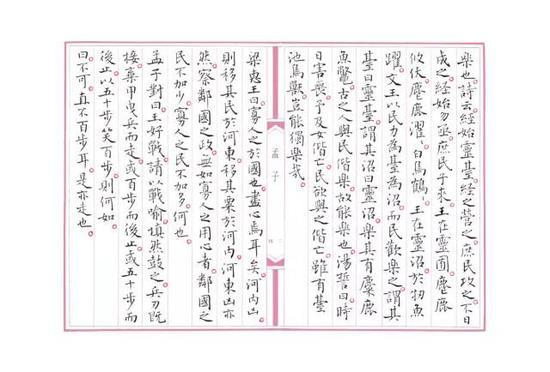 樂也詩云經始靈臺經之營之庶民攻之不日
成之經始勿亟庶民子來王在靈囿麀鹿
攸伏麀鹿濯〻白鳥鶴〻王在靈沼於牣魚
躍文王以民力為臺為沼而民歡樂之謂其
臺曰靈臺謂其沼曰靈沼樂其有麋鹿
魚鼈古之人與民偕樂故能樂也湯誓曰時
日害喪予及女偕亡民欲與之偕亡雖有臺
池鳥獸豈能獨樂哉
孟子
梁惠王曰寡人之於國也盡心焉耳矣河內凶
則移其民於河東移其粟於河內河東凶亦
然察鄰國之政無如寡人之用心者鄰國之
民不加少寡人之民不加多何也
孟子對曰王好戰請以戰喻填然鼓之兵刃既
接棄甲曳兵而走或百步而後止或五十步而
後止以五十步笑百步則何如
曰不可直不百步耳是亦走也